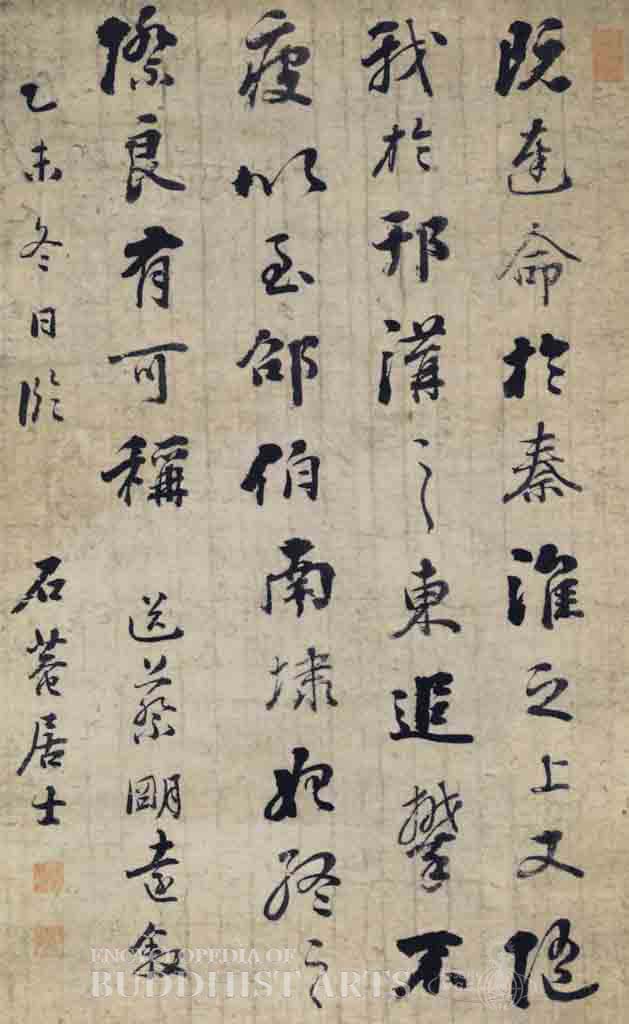 既達命於秦淮之上又隨
我於邗溝之東追攀不
疲以至邵伯南埭始終之
際良有可稱 送蔡朙遠敘
乙未冬日臨 石菴居士
ENCYCLOPEDIA OF
BUDDHIST ARTS